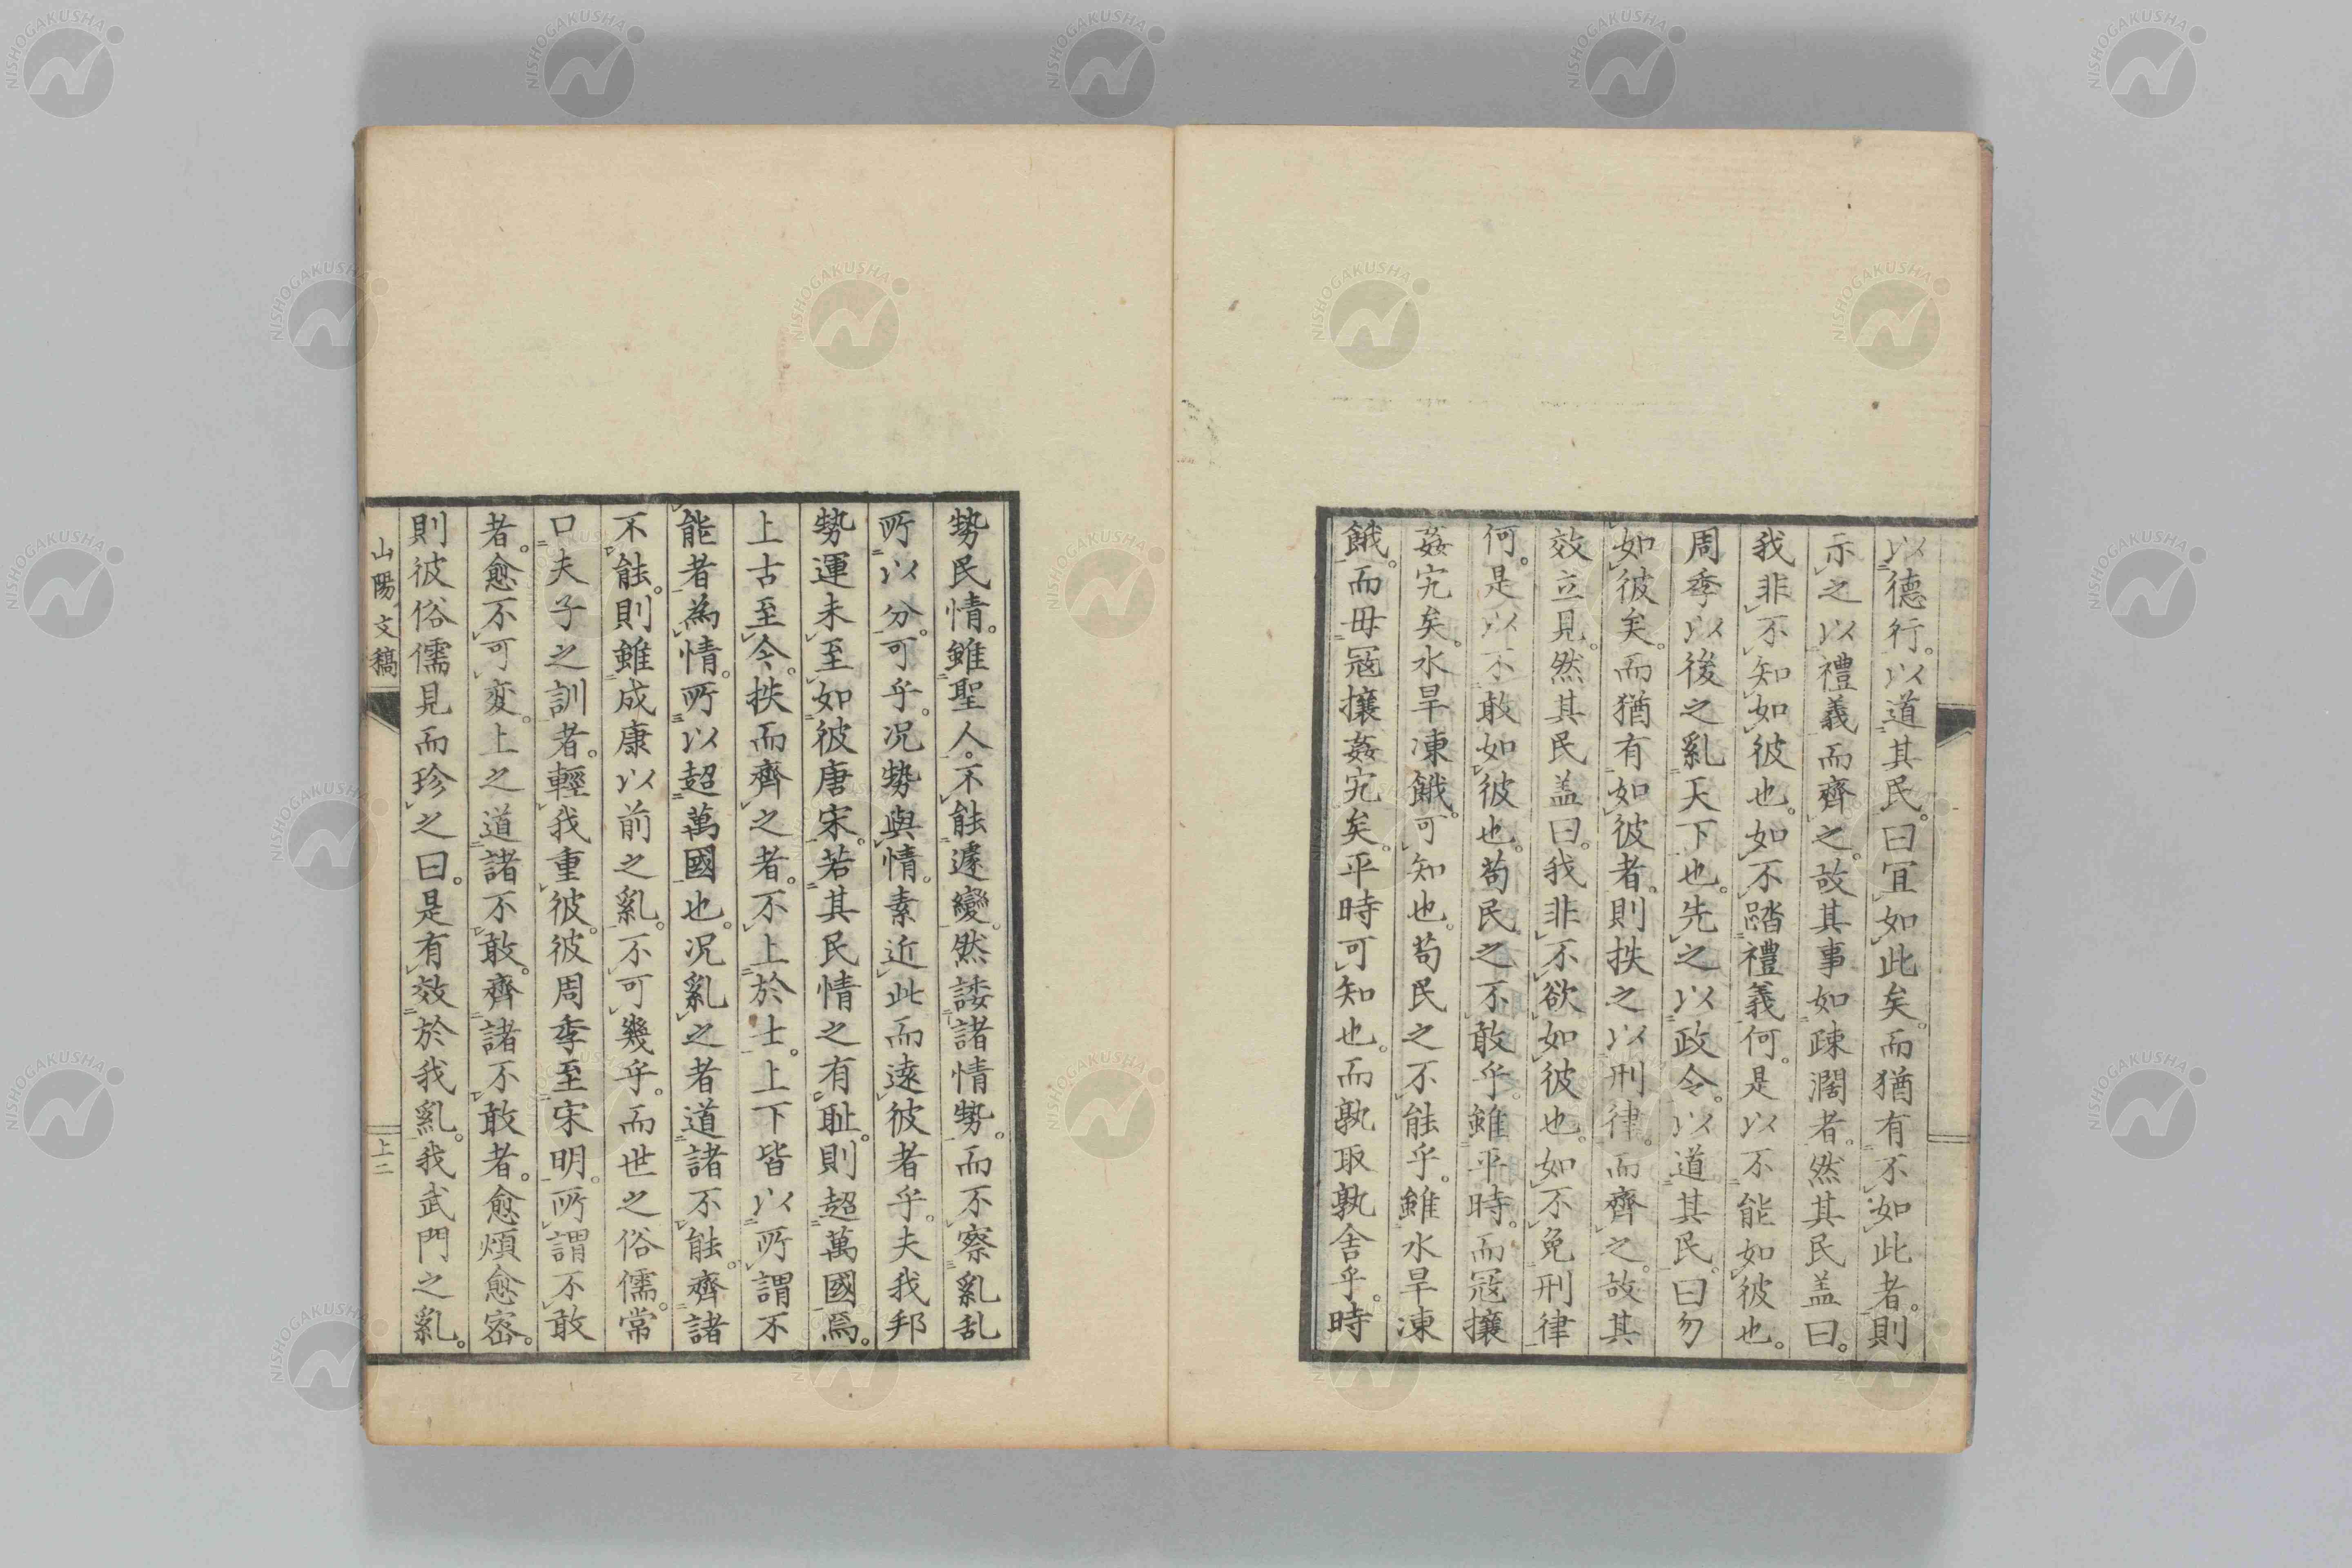 以德行。以道其民。曰宜如此矣。而猶有不如此者。則
示之以禮義而齊之。故其事如疎濶者。然其民盖曰。
我非不知如彼也。如不踏禮義何。是以不能如彼也。
周季以後之亂天下也。先之以政令。以道其民。曰勿
如彼矣。而猶有如彼者。則抶之以刑律。而齊之。故其
效立見。然其民盖曰。我非不欲如彼也。如不免刑律
何。是以不敢如彼也。苟民之不敢乎。雖平時。而寇攘
姦宄矣。水旱凍餓。可知也。苟民之不能乎。雖水旱凍
餓。而毋寇攘姦宄矣。平時可知也。而孰取孰舍乎。時
勢民情。雖聖人。不能遽變。然諉諸情勢。而不察亂乱
所以分。可乎。况勢與情。素近此而遠彼者乎。夫我邦
勢運未至如彼唐宋。若其民情之有耻。則超萬國焉。
上古至今。抶而齊之者。不上於士。上下皆以所謂不
能者為情。所以超萬國也。况亂之者道諸不能。齊諸
不能。則雖成康以前之亂。不可幾乎。而世之俗儒。常
口夫子之訓者。輕我重彼。彼周季至宋明。所謂不敢
者。愈不可変。上之道諸不敢。齊諸不敢者。愈煩愈密。
則彼俗儒見而珍之曰。是有效於我亂。我武門之亂。
山陽文稿
上二
NISHOGAKUSHA